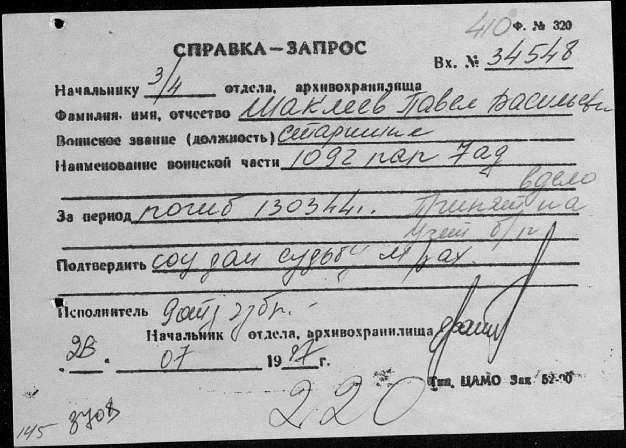 410 Ф. № 320
СПРАВКА — ЗАПРОС
Вх. № 34548
Начальнику 3/4 отдела, архивохранилища
Фамилия, имя, отчество Шаклеев Павел Васильевич
Воинское звание (должность) старшина
Наименование воинской части 1092 пап 7ад
в дело
За период погиб 130344г. Принят на
учет б/п
Подтвердить судьбу
Исполнитель
Начальник отдела, архивохранилища
28. 07 1987 г.
Тип. ЦАМО Зак 52-90
220
145